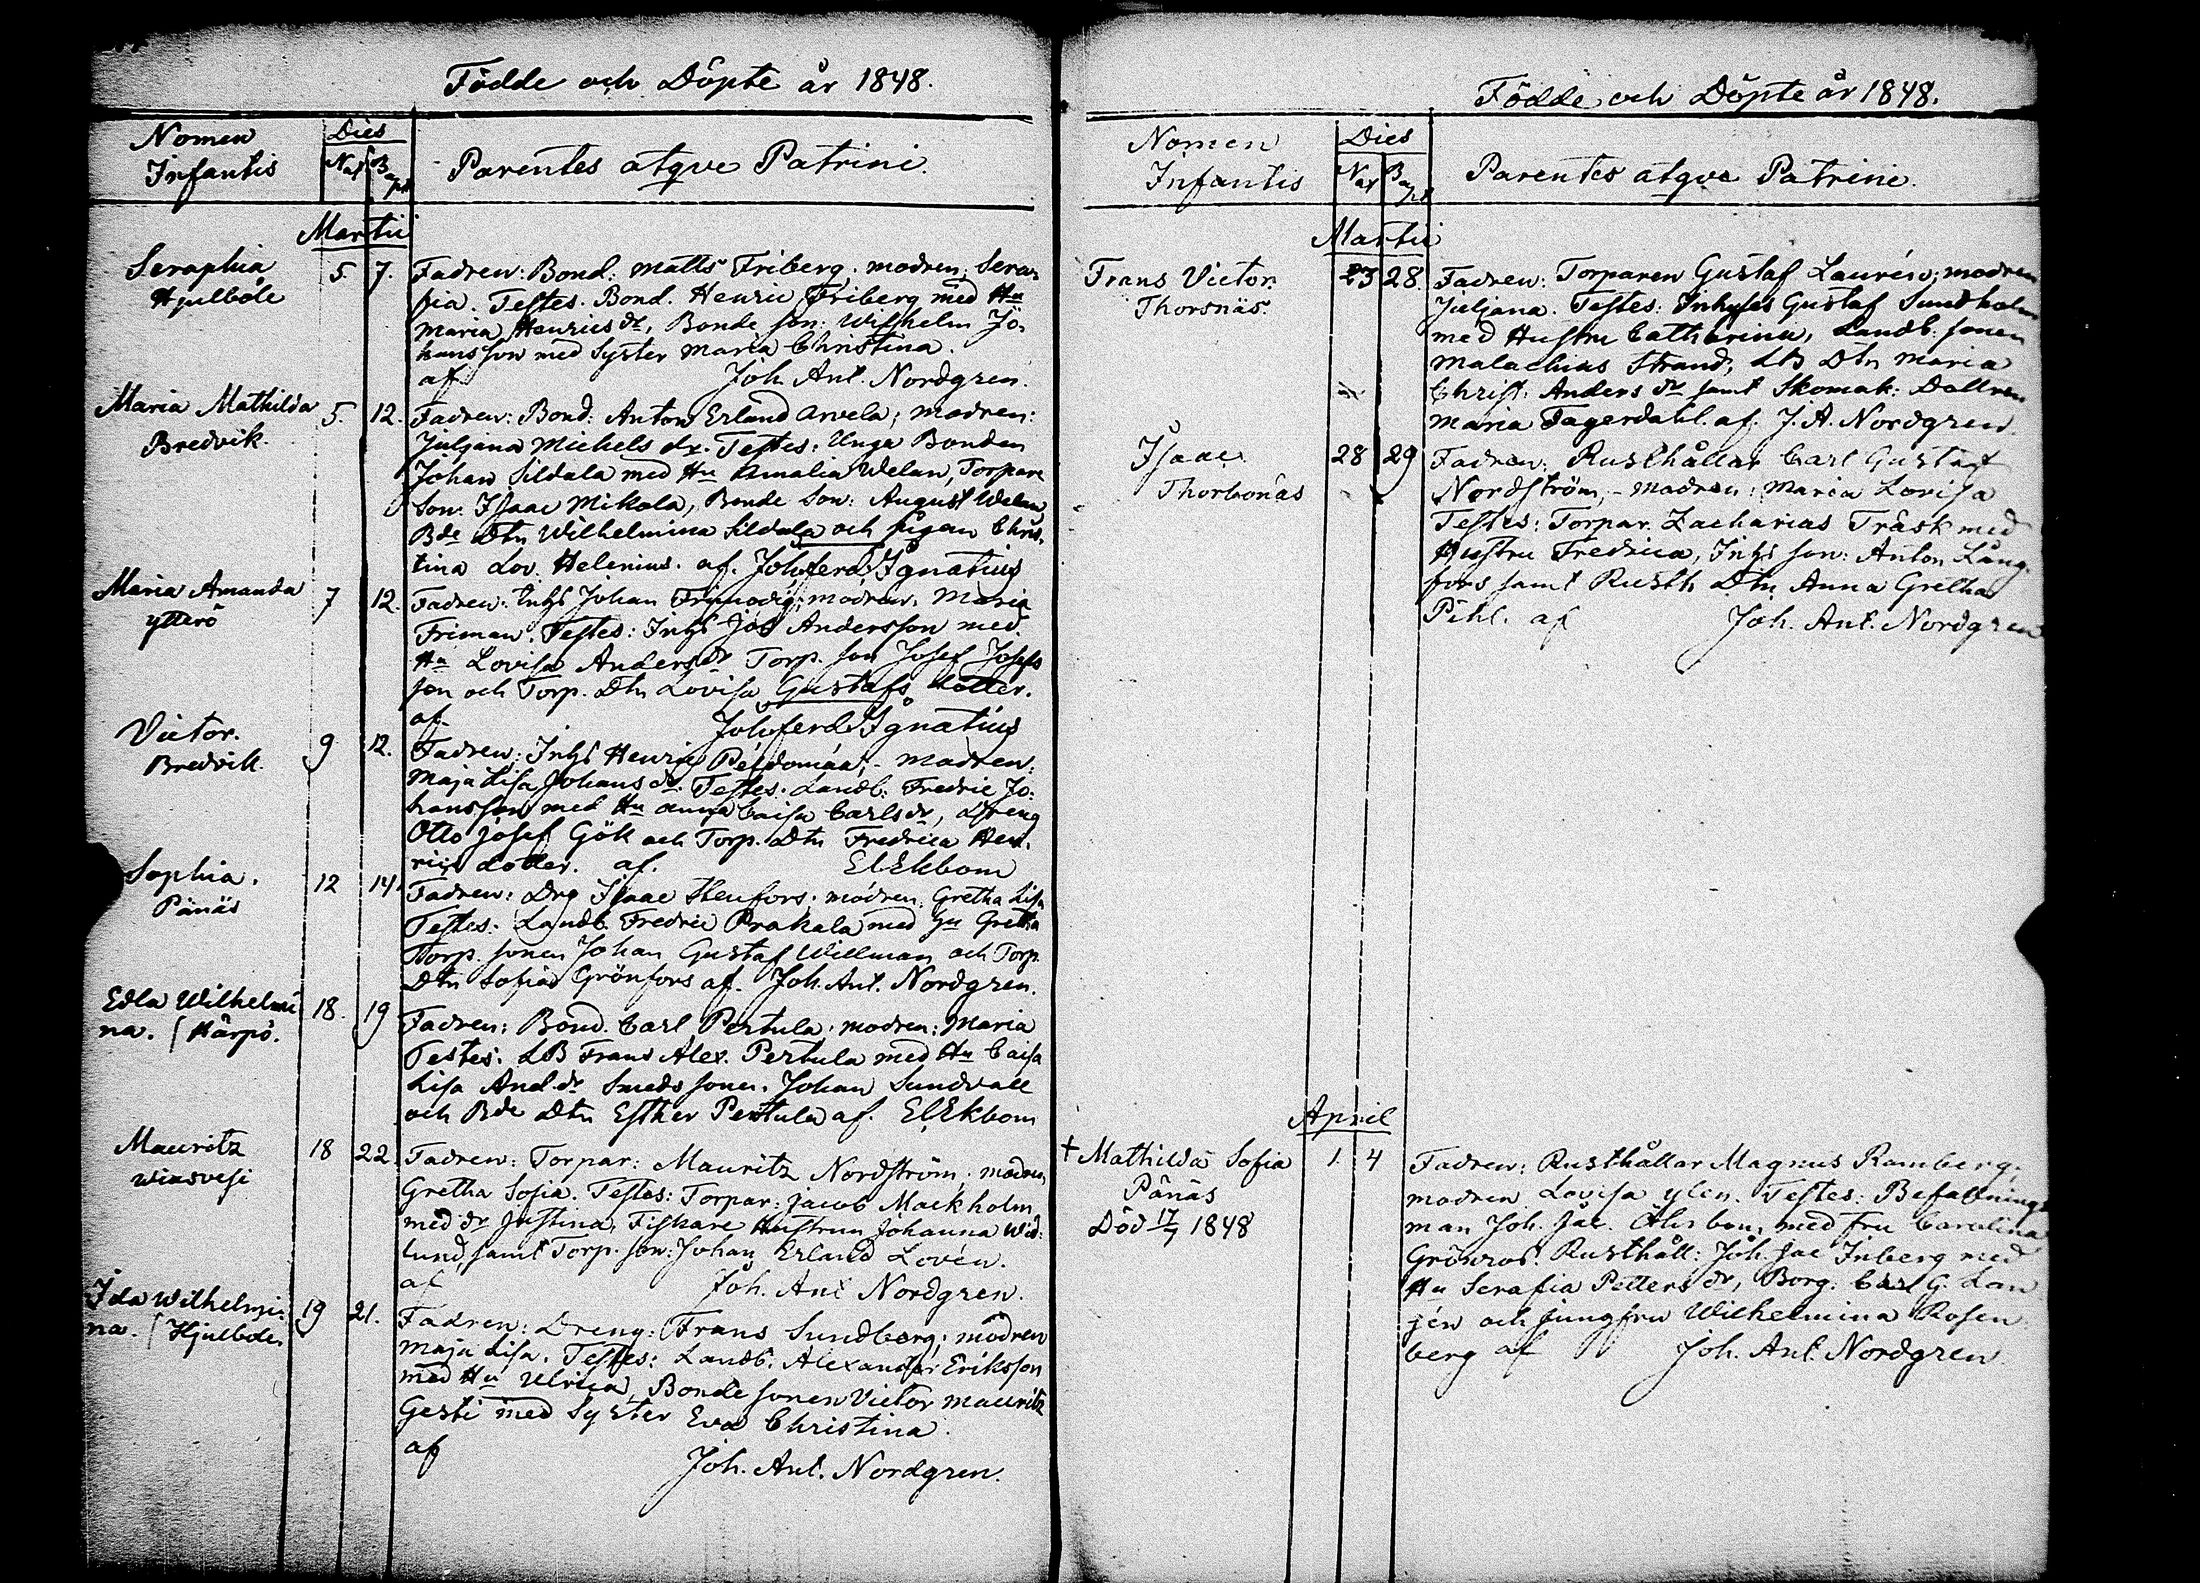 Födde och Döpte år 1848.
Nomen Infantis
Dies
Nat Bapt
Parentes atqve Patrini.
Martii
Seraphia
Hjulböle
5. 7.
Fadren: Bond: Matts Friberg. modren: Sera=
fia. Testes. Bond. Henric Friberg med Hu
Maria Henricsdr, Bonde son: Wilhelm Jo=
hansson med Syster Maria Christina.
af Joh. Ant. Nordgren.
Maria Mathilda
Bredvik.
5. 12.
Fadren: Bond: Anton Erland Arvela; modren:
Juljana Michels dr. Testes: Unga Bonden
Johan Sildala med Hu Amalia Welan, Torpare
Son: Isaac Mikola, Bonde Son: August Welan
Bde Dtn Wilhelmina Sildala och pigan Chris=
tina Lov. Helenius. af. Joh ferd Ignatius
Maria Amanda
ytterö
7 12.
Fadren: Inhs Johan Frimodig; modren: Maria
Friman. Testes: Inhs Job Andersson med
Hu Lovisa Andersdr Torp. son Josef Josefs
son och Torp. Dtn Lovisa Gustafs dotter.
af Joh ferd Ignatius
Victor.
Bredvik.
9 12.
Fadren: Inhs Henric; - madren:
Maja Lisa Johansdr. Testes. Landb: Fredric Jo=
hansson med Hu Anna Caisa Carlsdr, dreng
Otto Josef Gök och Torp. Dtn Fredrica Hen=
rics dotter. af. El Ekbom
Sophia.
Pänäs
12 14.
Fadren: Drg Isaac Stenfors; modren: Gretha Lisa
Testes: Landb. Fredric Prakala med Hu Gretha
Torp. sonen Johan Gustaf Willman och Torp.
Dtn Sofia Grönfors af. Joh. Ant. Nordgren.
Edla Wilhelmi
na. / Härpö.
18. 19
Fadren: Bond. Carl Pertula; modren: Maria
Testes: LB Frans Alex. Pertula med Hu Caisa
Lisa And.dr Smeds sonen. Johan Sundvall
och Bde Dtn Esther Pertula af. El Ekbom
Mauritz
Wiasvesi
18 22.
Fadren: Torpar: Mauritz Nordström; modren
Gretha Sofia. Testes: Torpar: Jacob Mackholm
med dr Justina, Fiskare Hustrun Johanna Wid=
lund, samt Torp. son: Johan Erland Lovén.
af Joh. Ant Nordgren.
Ida Wilhelmi=
na. / Hjulböle.
19 21.
Fadren: Dreng: Frans Sundberg; modren
Maja Lisa. Testes: Landb. Alexander Eriksson
med Hu Ulrica, Bonde sonen Victor Mauritz
Gesti med Syster Eva Christina.
af Joh. Ant. Nordgren.
Födde och Döpte år 1848.
Nomen Infantis
Dies
Nat Bapt
Parentes atqve Patrini.
Martii
Frans Victor.
Thorsnäs.
23 28.
Fadren: Torparen Gustaf Laurén; modren
Juljana. Testes: Inhyses Gustaf Sundholm
med Hustru Catharina, Landb: sonen
Malachias Strand, LB Dtn Maria
Christ: Anders dr samt Skomak: Dottren
Maria Fagerdahl. af. J. A. Nordgren
Isaac.
Thorbonäs
28 29
Fadren: Rusthållar Carl Gustaf
Nordström, - modren: Maria Lovisa
Testes: Torpar. Zacharias Träsk med
Hustru Fredrica, Inhs son: Anton Lång=
fors samt Rusth. Dtn Anna Gretha
Pihl. af Joh. Ant. Nordgren
April
+ Mathilda Sofia
Pänäs
Död 17/7 1848
1. 4
Fadren: Rusthållar Magnus Ramberg.
modren Lovisa ylén. Testes: Befallnings
man Joh. Jac. med Fru Carolina
Grönroos. Rusthåll: Joh. Jac Inberg med
Hu Serafia Petters dr, Borg: Carl G. Lau
jén och jungfru Wilhelmina Rosen
berg af Joh. Ant. Nordgren